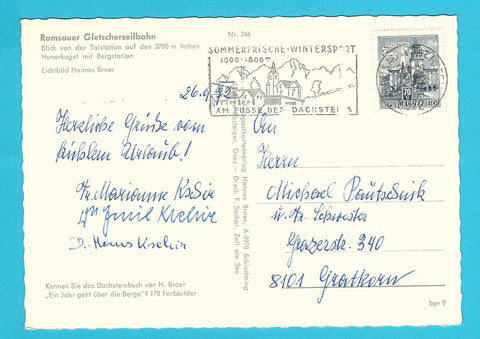 Ramsauer Gletscherseilbahn
Blick von der Talstation auf den 2700 m hohen
Hunerkogel mit Bergstation
Lichtbild Hannes Broer
Nr. 246
SOMMERFRISCHE-WINTERSPORT
1000-1800m
AM FUSSE DES DACHSTEINS
REPUBLIK ÖSTERREICH
26.9.72
Herzliche Grüße vom
kühlem Urlaub!
Fr. Marianne
Emil Krehir
D. Hans Krehir
An
Herrn
Michael
u. Fr. Schwester
Grazerstr. 340
8101 Gratkorn
Postkartenverlag Hannes Broer, A-8970 Schladming
Graz – Druck F. Sochor, Zell am See
Kennen Sie das Dachsteinbuch von H. Broer
„Ein Jahr geht über die Berge"? 170 Farbbilder
bpr 9